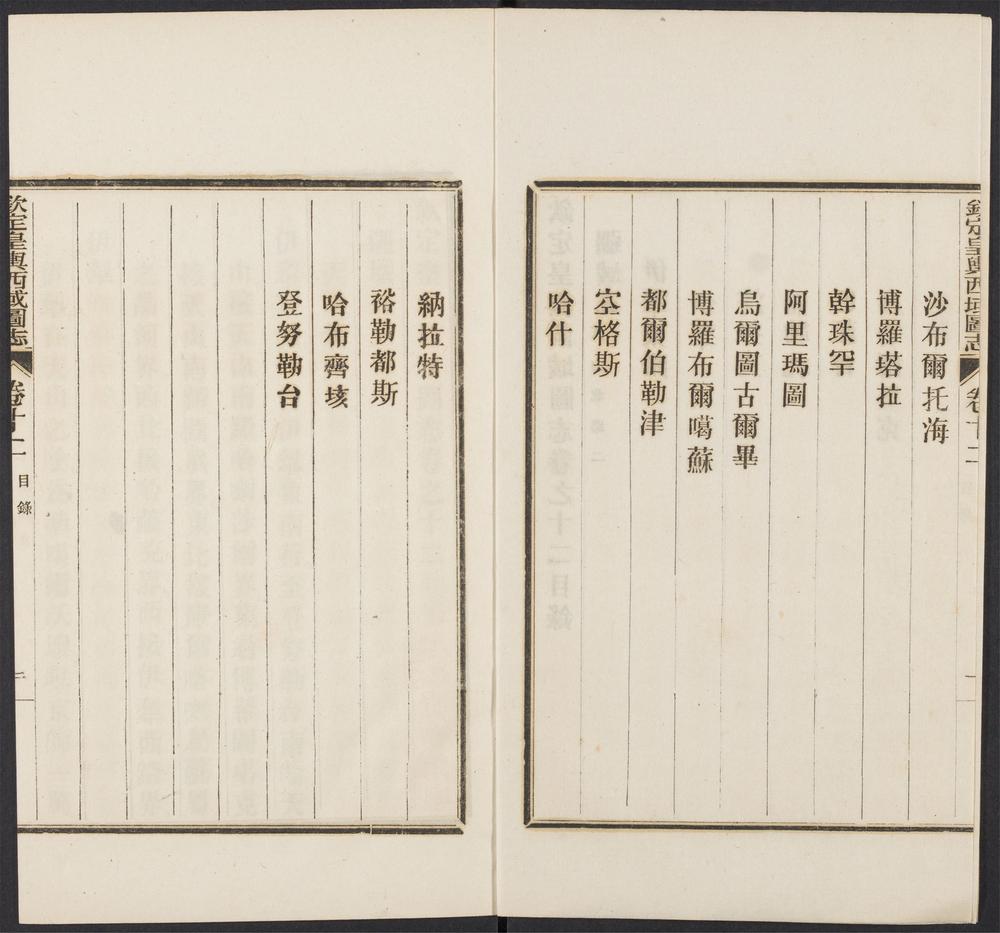 欽定皇輿西域圖志 卷十二 一
沙布爾托海
博羅塔拉
斡珠罕
阿里瑪圖
烏爾圖古爾畢
博羅布爾噶蘇
都爾伯勒津
空格斯
哈什
納拉特
裕勒都斯
哈布齊垓
登努勒台
欽定皇輿西域圖志 卷十二 目錄 二